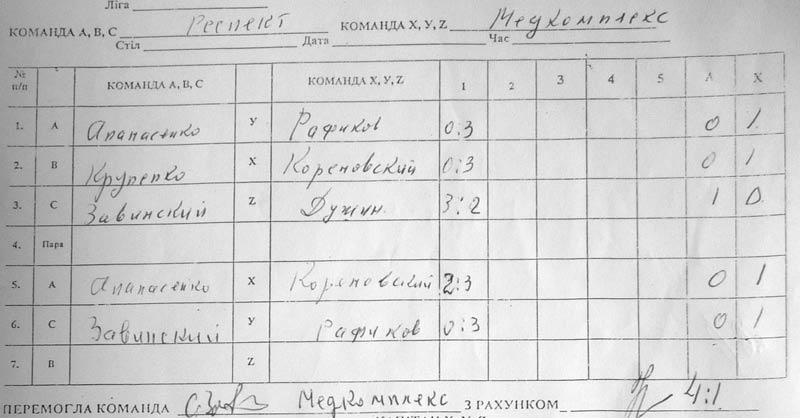 Ліга
КОМАНДА А, В, С Респект КОМАНДА X, У, Z Медкомплекс
Стіл Дата Час
№ п/п КОМАНДА А, В, С КОМАНДА X, У, Z 1 2 3 4 5 А Х
1. А Апанасенко У Рафиков 0:3 0 1
2. В Крупепко Х Кореновский 0:3 0 1
3. С Завинский Z Душин 3:2 1 0
4. Пара
5. А Апанасенко Х Кореновский 2:3 0 1
6. С Завинский У Рафиков 0:3 0 1
7. В Z
ПЕРЕМОГЛА КОМАНДА Медкомплекс З РАХУНКОМ 4:1